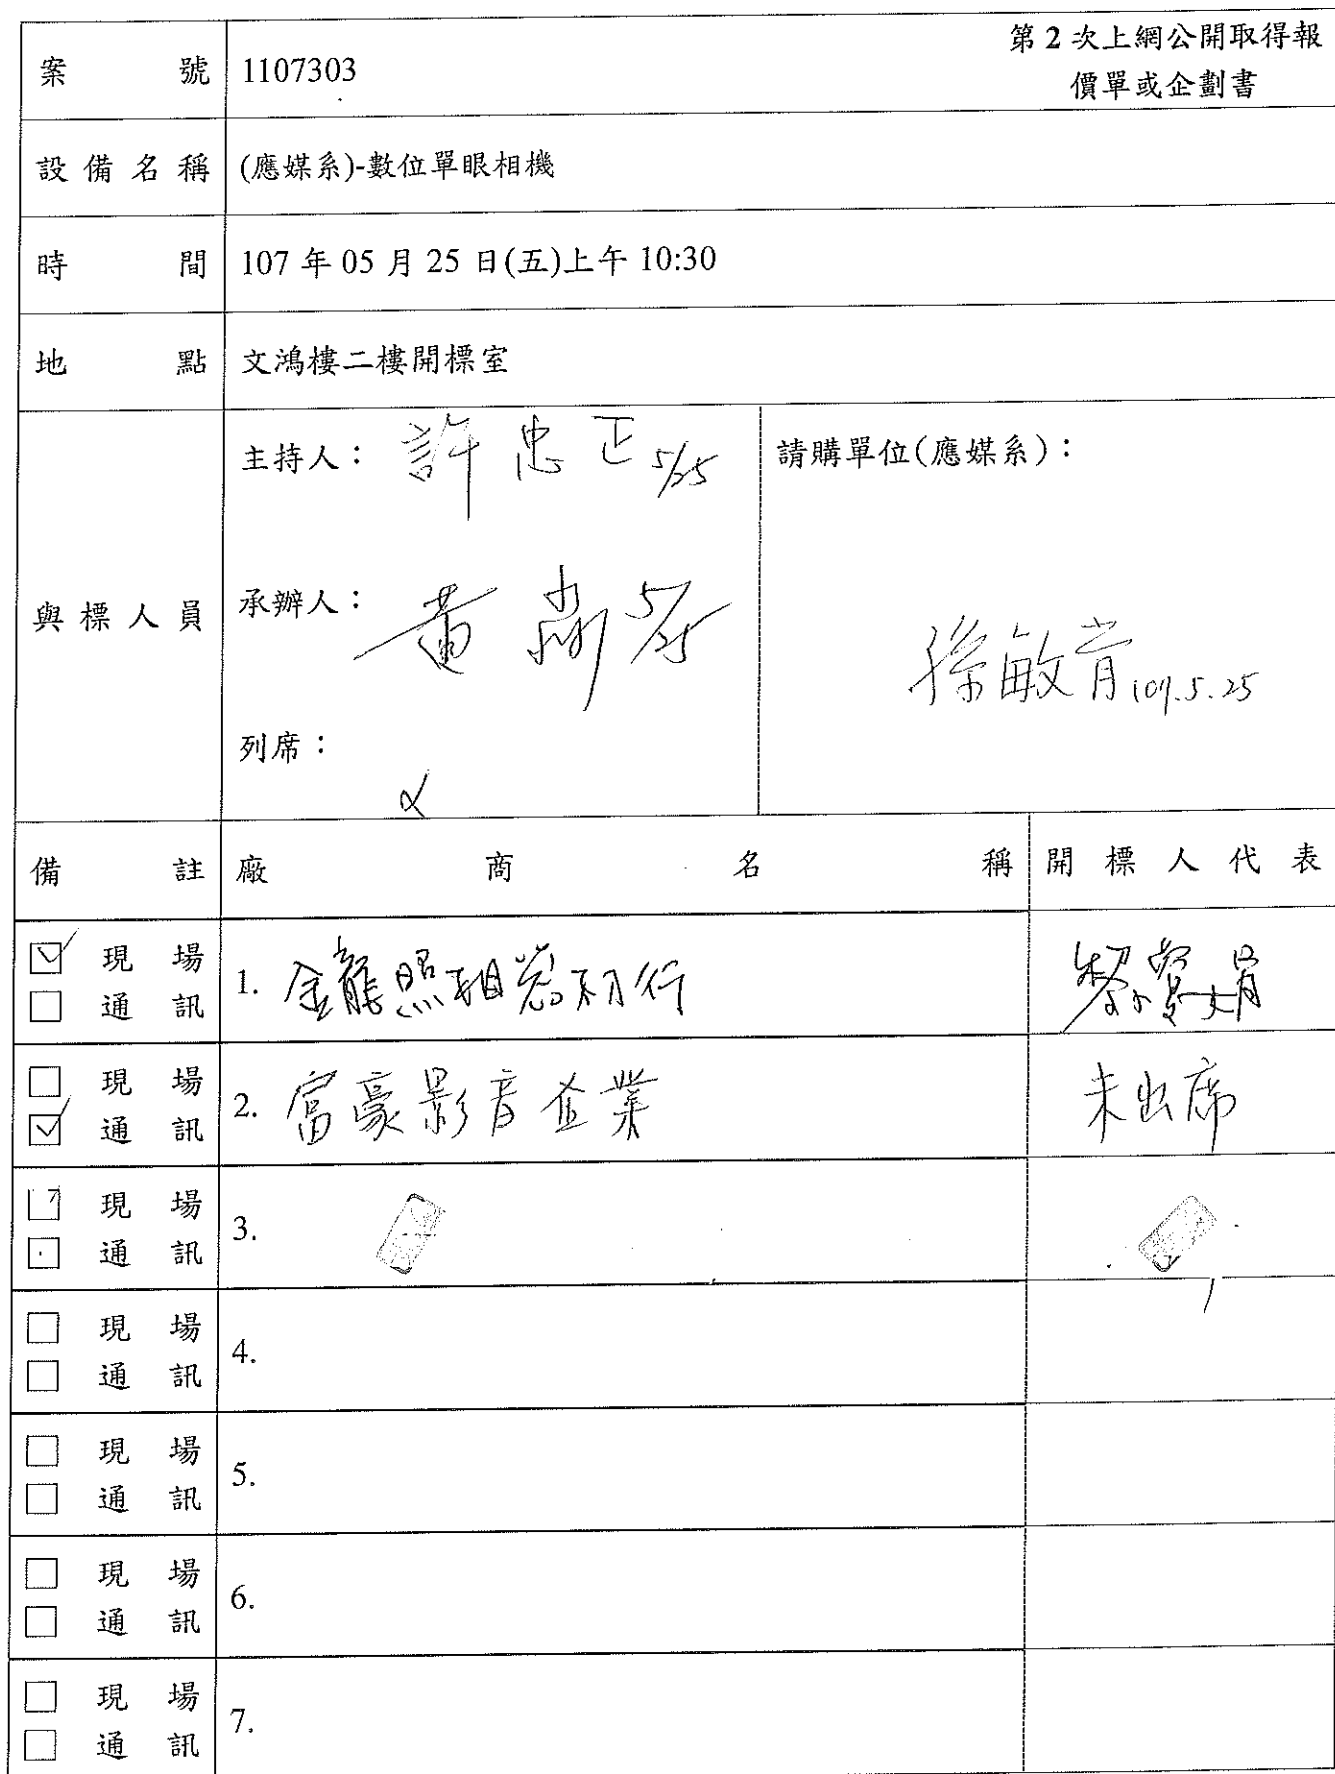 案號 1107303 第2次上網公開取得報
價單或企劃書
設備名稱 (應媒系)-數位單眼相機
時間 107年05月25日(五)上午10:30
地點 文鴻樓二樓開標室
與標人員
主持人：許忠正 5/25
請購單位(應媒系)：
承辦人：黃 5/25
孫敏育 107.5.25
列席：
備註 廠商名稱 開標人代表
現場
通訊
1. 金龍照相器材行
2. 富豪影音企業 未出席
現場
通訊
3.
現場
通訊
4.
現場
通訊
5.
現場
通訊
6.
現場
通訊
7.
現場
通訊